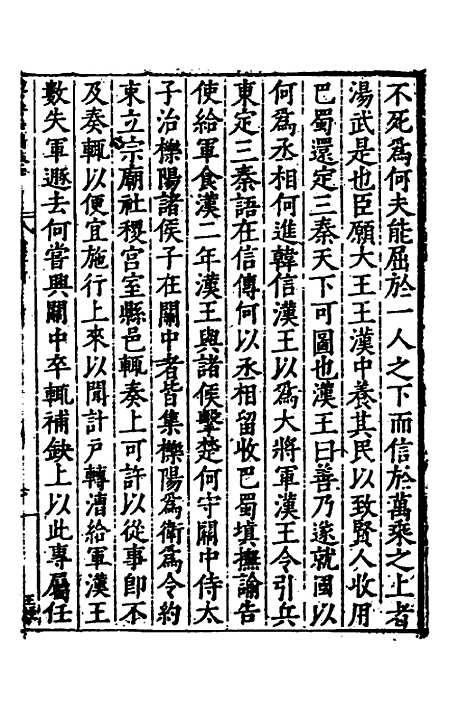 不死爲何夫能屈於一人之下而信於萬乘之上者
湯武是也臣願大王王漢中養其民以致賢人收用
巴蜀還定三秦天下可圖也漢王曰善乃遂就國以
何爲丞相何進韓信漢王以爲大將軍漢王令引兵
東定三秦語在信傳何以丞相留收巴蜀填撫諭告
使給軍食漢二年漢王與諸侯擊楚何守關中侍太
子治櫟陽諸侯子在關中者皆集櫟陽爲衛爲令約
束立宗廟社稷宮室縣邑輒奏上可許以從事卽不
及奏輒以便宜施行上來以聞計戸轉漕給軍漢王
數失軍遯去何嘗興關中卒輒補缺上以此專屬任